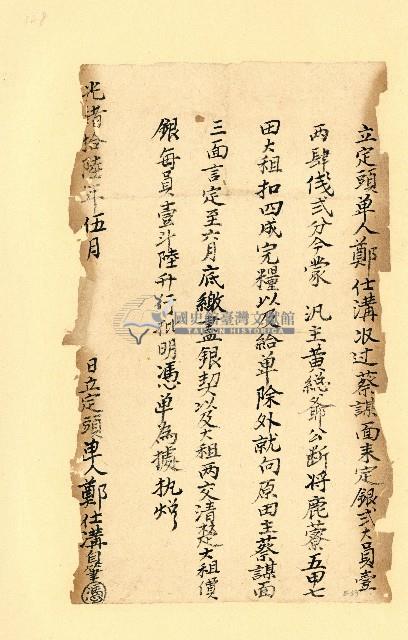 立定頭单人鄭仕溝收过蔡謀面来定銀弍大員壹
两肆伐弍分今蒙　汎主黄総爺公断将鹿藔五甲七
田大租扣四成完糧以及給单除外就向原田主蔡謀面
三面言定至六月底繳盖銀契以及大租两交清楚大租價
銀每員壹斗陸升明憑单為據执炤
光緒拾陸年伍月　日立定頭单人鄭仕溝自筆
國史館臺灣文獻館
TAIWAN HISTORICA